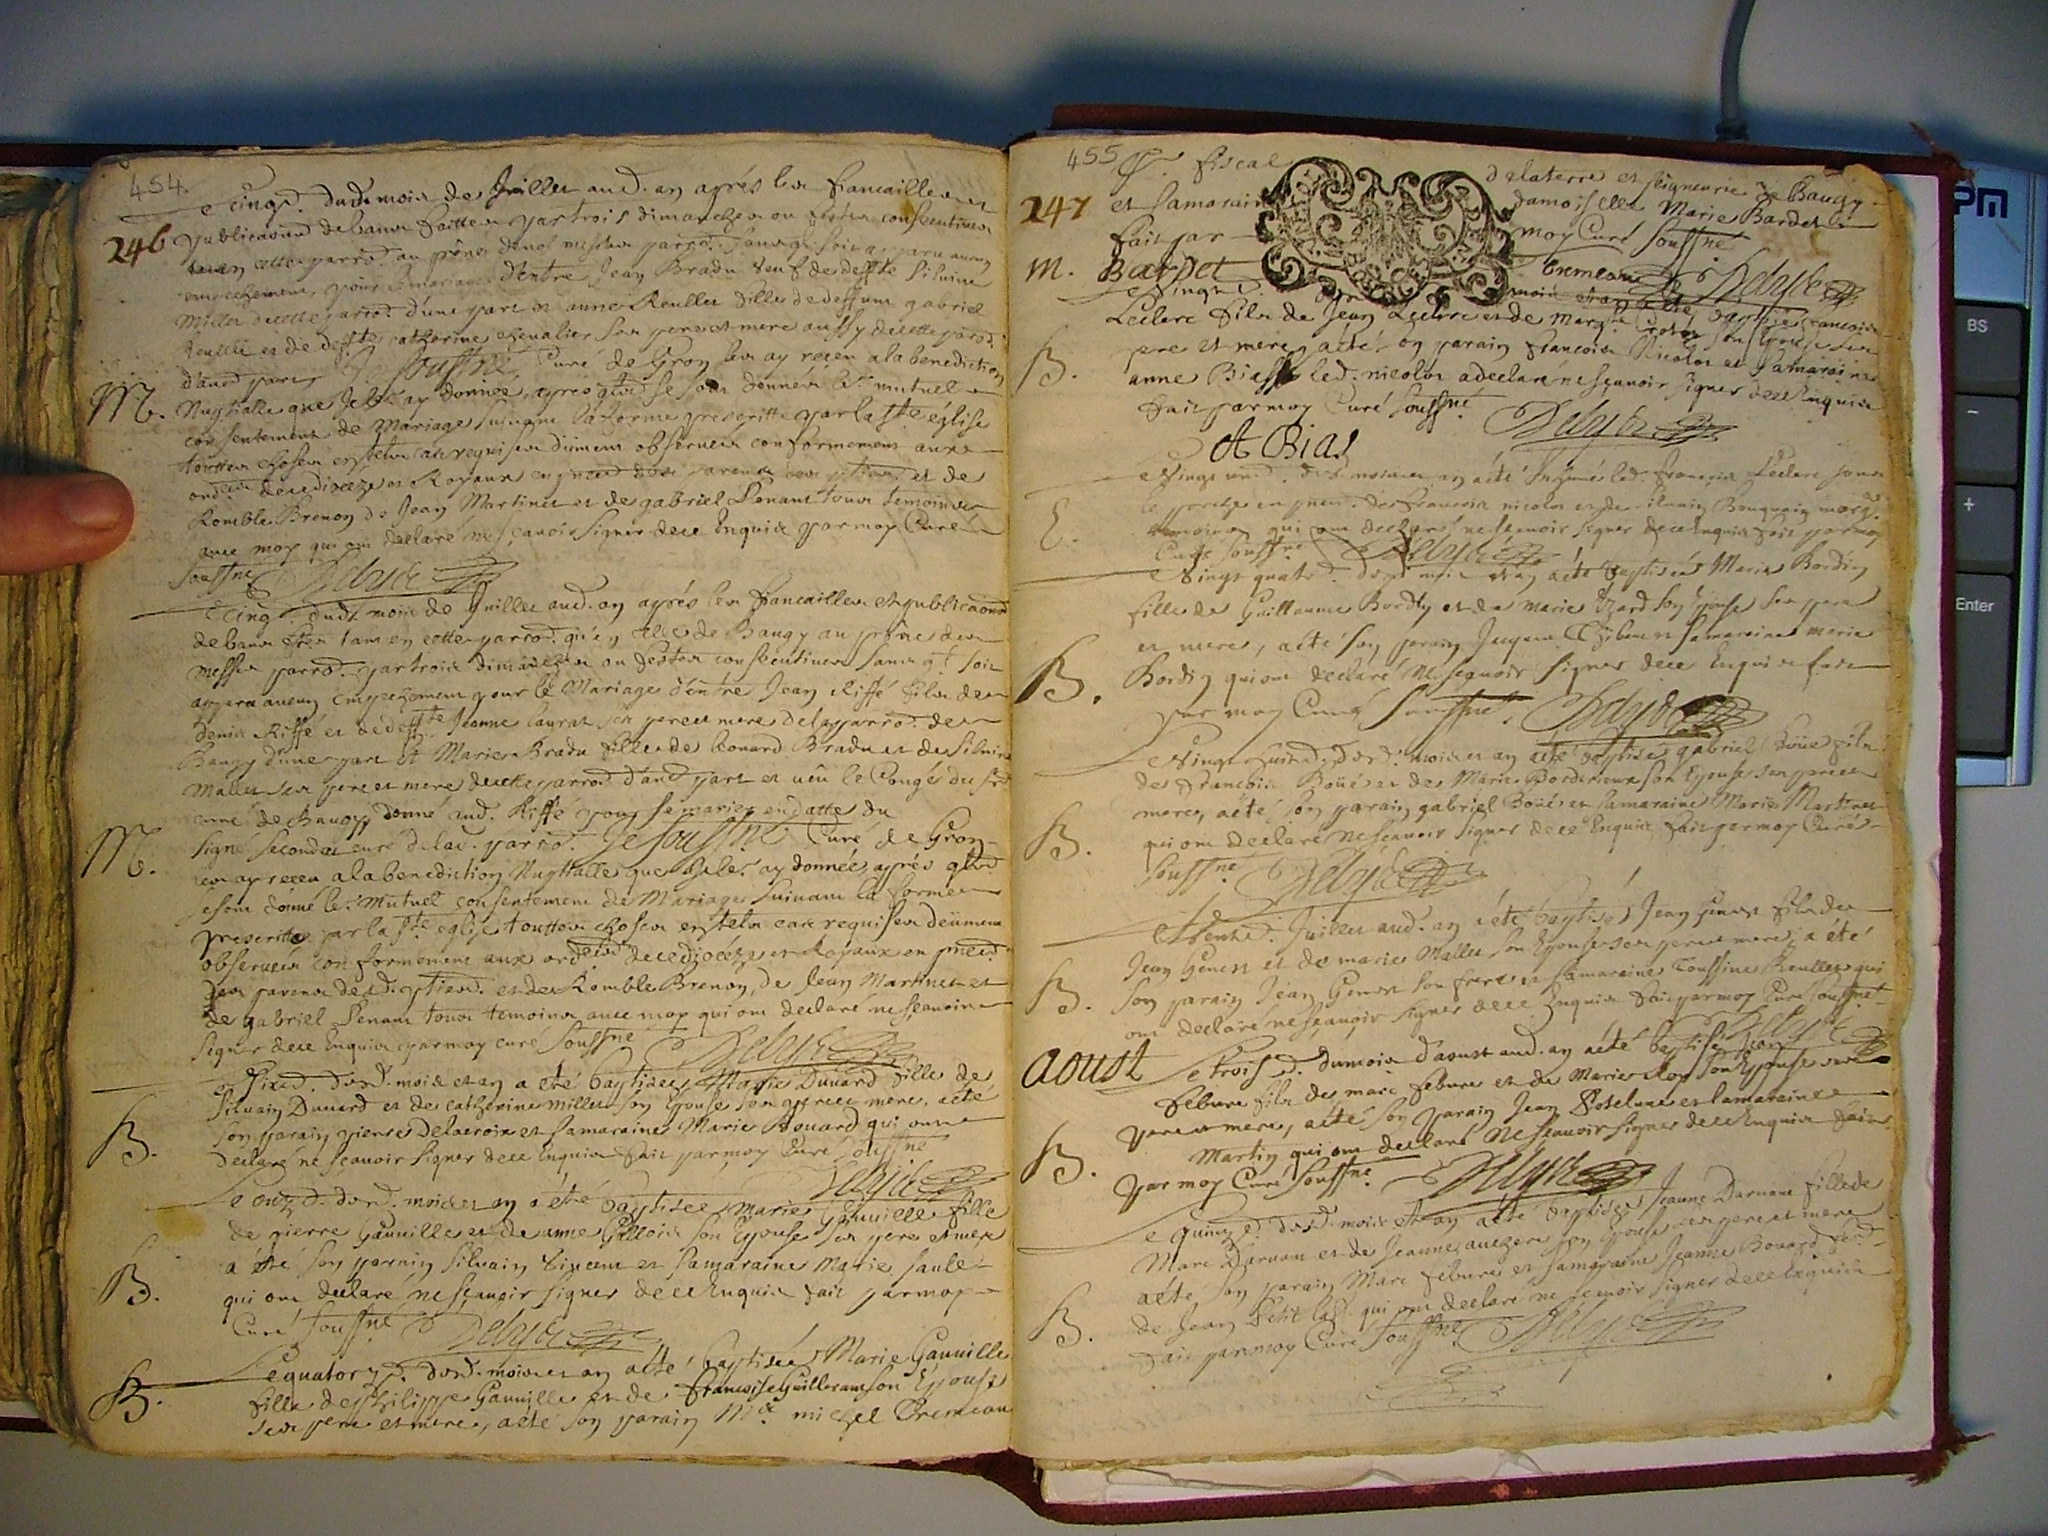 454.
246
Le cinq.e dud. mois de Juillet aud. an aprés les fiancailles et
publica.ons de bans faittes par trois dimanches ou festes consecutives
tant en cette parro.d au prône de nos messes parro. sans qu'il soit apparu aucun
empeschement, pour le mariage d'entre Jean Bradu veuf de deff.te Silvine
Millet de cette parro.d d'une part et anne Reullet fille de deffunt gabriel
Reullet et de deff.te catherine chevalier ses pere et mere aussy de cette parro.d
d'aut.e part, Je soussné Curé de Gron les ay reçeu a la benediction
M. Nuptialle que Je leur ay donnée, aprés q'ils se sont donnés le mutuel
consentement de Mariage suivant la forme prescritte par la s.te église
touttes choses en tel cas requises dûment observées conformement aux
ord.ces de ce diocèze et Royaux en p.nce des parens des parties et de
Romble Brenon de Jean Martinet et de gabriel Penant tous temoins
avec moy qui ont declaré ne sçavoir signer de ce Enquis par moy Curé
soussné
Le cinq.e dud. mois de Juillet aud. an aprés les fiancailles et publica.ons
de bans f.tes tant en cette parro.d qu'en celle de Baugy au prône des
messes parro. par trois dimanches ou festes consecutives sans q'il soit
apparu aucun empeschement pour le Mariage d'entre Jean Riffé fils de
denis Riffé et de deff.te Jeanne laurat ses pere et mere de la parro.d de
Baugy d'une part et Marie Bradu fille de leonard Bradu et de Silvine
Mallet ses pere et mere de cette parro.d d'aut.e part et veû le Congé du s.r
curé de Baugy donné aud. Riffé pour se marier en datte du
M. signé secondat curé de lad. parro.d Je soussné Curé de Gron
les ay reçeu a la benediction Nuptialle que Je leur ay donnée, aprés q'ils
se sont donné le mutuel consentement de Mariage suivant la forme
prescritte par la s.te eglise touttes choses en tels cas requises deüment
observées conformement aux ord.ces de ce diocéze et Royaux en p.nce
des parens desd. parties et de Romble Brenon, de Jean Martinet et
de gabriel Penant tous temoins avec moy qui ont declaré ne sçavoir
signer de ce Enquis par moy curé soussné
Le sixe.e dud. mois et an a eté baptisée Marie Duuard fille de
Silvain Duuard et de catherine millet son Epouse ses pere et mere, a eté
B. son parain pierre Delacroix et sa maraine Marie Bouard qui ont
declaré ne sçavoir signer de ce Enquis fait par moy Curé soussné
Le onze.e dud. mois et an a été baptisée marie Gauville fille
de pierre Gauville et de anne Gallois son Epouse ses pere et mere
B. a été son parain silvain vincent et sa maraine Marie saulet
qui ont declaré ne sçavoir signer de ce Enquis fait par moy
Curé soussné
Le quatorze.e dud. mois et an a été baptisée Marie Gauville
B. fille de philippe Gauville et de francoise Guillerant son Epouse
ses pere et mere, a été son parain M.e michel Bremeau
455
P. fiscal de la terre et seigneurie de Baugy
247 et sa maraine damoiselle Marie Bardet
fait par moy Curé soussné
m. Bardet Bremeau
Le vingt.e mois et an a été baptisé francois
Leclerc fils de Jean Leclerc et de Marg.te son Epouse ses
B. pere et mere, a été son parain francois Nicolas et sa maraine
anne Bias led. nicolas a declaré ne sçavoir signer de ce Enquis
fait par moy Curé soussné
A Bias
Le vingt un.e dud. mois et an a été Inhumé led. francois Leclerc sous
E. le porche en p.nce de francois nicolas et de
temoins qui ont declaré ne sçavoir signer de ce Enquis fait par moy
Curé soussné
Le vingt quatre.e dud. mois et an a été baptisée Marie Bordin
fille de Guillaume Bordin et de marie Izard son Epouse ses pere
et mere, a été son parain Jaques Thibaut et sa maraine marie
B. Bordin qui ont declaré ne sçavoir signer de ce Enquis fait
par moy Curé soussné.
Le vingt huit.e dud. mois et an a été baptisé gabriel Boüé fils
de francois Boüé et de Marie Bordereux son Epouse ses pere et
mere, a été son parain gabriel Boüé et sa maraine Marie Martinet
B. qui ont declaré ne sçavoir signer de ce Enquis fait par moy Curé
soussné
Le Trente.e Juillet aud. an a été baptisé Jean Genest fils de
Jean Genest et de marie Mallet son Epouse ses pere et mere, a été
B. son parain Jean Genest son frere et sa maraine Toussine Reullet qui
ont declaré ne sçavoir signer de ce Enquis fait par moy Curé soussné
aoust Le trois.e du mois d'aoust aud. an a été baptisé Jean
febure fils de marc febure et de Marie Roy son Epouse ses
pere et mere, a été son parain Jean et sa maraine
B. Martin qui ont declaré Ne sçavoir signer de ce Enquis fait
par moy Curé soussné
Le quinze.e dud. mois et an a été baptisée Jeanne Darnam fille de
Marc Darnam et de Jeanne auezere son Epouse ses pere et mere
a été son parain Marc febure et sa maraine Jeanne Bouard
B. de Jean Petit qui ont declaré ne sçavoir signer de ce Enquis
fait par moy Curé soussné
PM
BS
-
+
Enter